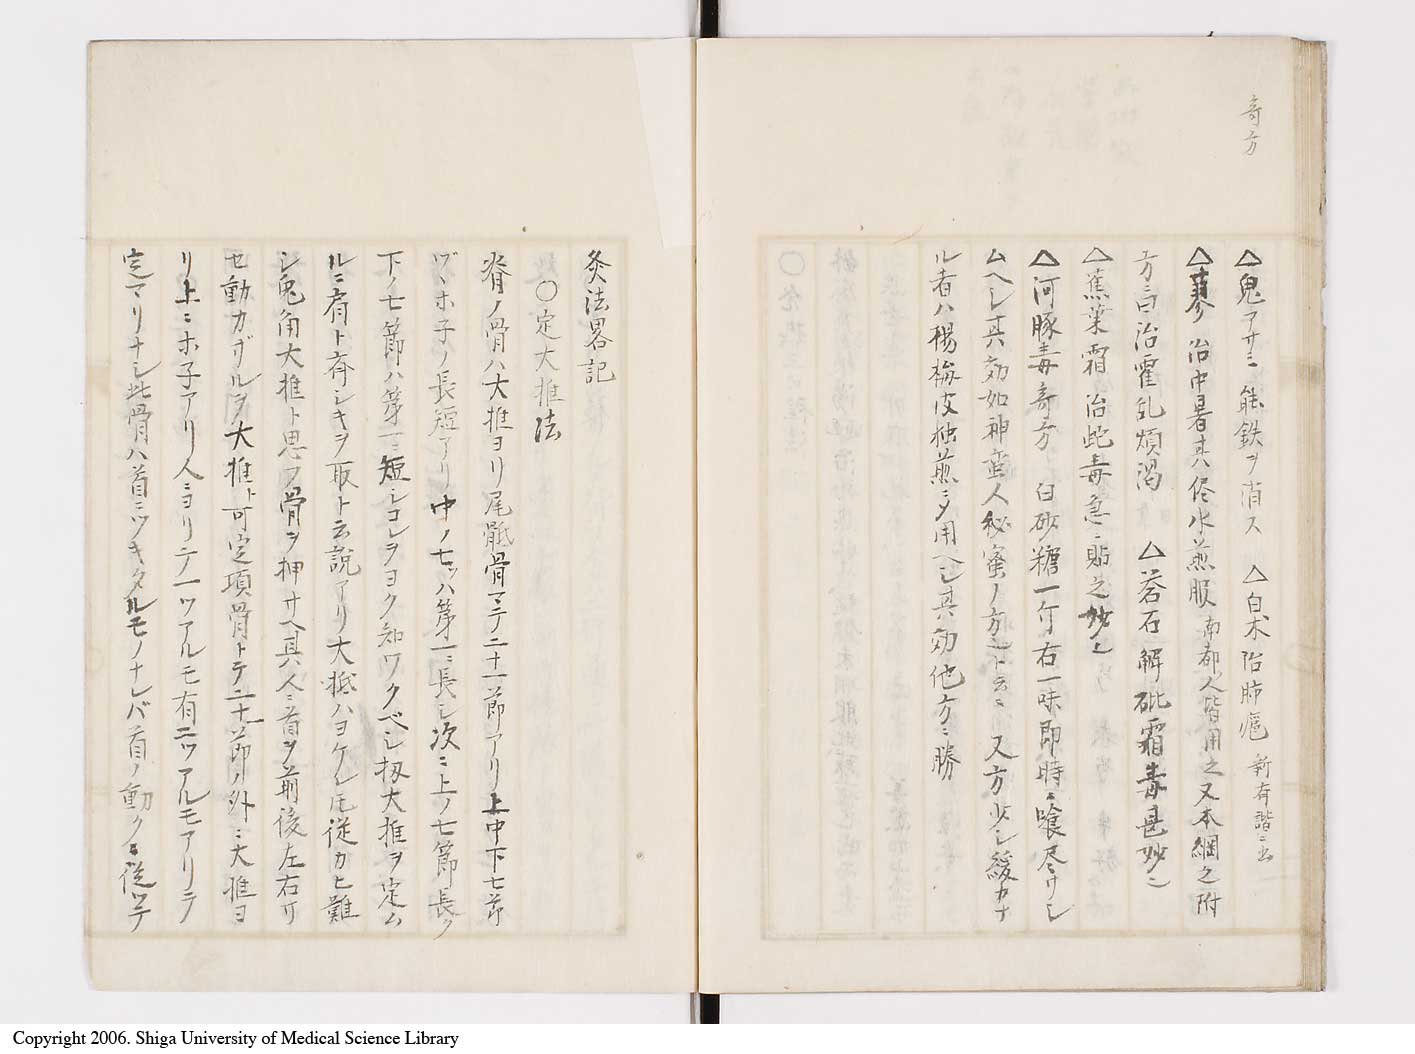 奇方
△鬼アサミ 能鉄ヲ消ス △白朮治肺瘧 新有諧ニ出
△蓼 治中暑其侭水煎服 南都人皆用之又本綱之附
方曰治霍乱煩渇 △萻石解砒霜毒甚妙ニ
△蕉葉霜治蛇毒急ニ貼之妙ニ
△河豚毒奇方 白砂糖一斤右一味即時ニ喰尽サシ
ムヘシ其効如神蛮人秘蜜ノ方ニト云ニ 又方少シ緩カナ
ル者ハ楊梅皮独煎シ用ヘシ其効他方ニ勝
灸法畧記
○定大推法
脊ノ骨ハ大推ヨリ尾骶骨マテ二十一節アリ上中下七節
ヅヽホ子ノ長短アリ中ノ七ツハ第一ニ長シ次ニ上ノ七節長ク
下ノ七節ハ第一ニ短シコレヲヨク知ワクベシ扨大推ヲ定ム
ルニ肩ト斉シキヲ取ト云説アリ大抵ハヨケレ𪜈従カヒ難
シ兎角大推ト思フ骨ヲ押サヘ其人ニ首ヲ前後左右リ
セ動カザルヲ大推ト可定項骨トテ二十一節ノ外ニ大推ヨ
リ上ニホ子アリ人ニヨリテ一ツアルモ有二ツアルモアリテ
定マリナシ此骨ハ首ニツキタルモノナレバ首ノ動クニ従ツテ
Copyright 2006. Shiga University of Medical Science Library